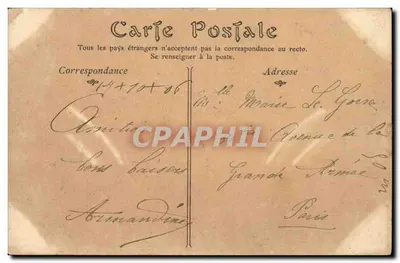 Carte Postale
Tous les pays étrangers n'acceptent pas la correspondance au recto.
Se renseigner à la poste.
Correspondance
Adresse
14 + 10 + 06
Mlle Marie Le
Avenue de la
Grande Armée
Paris
bons baisers
Armandine
CPAPHIL